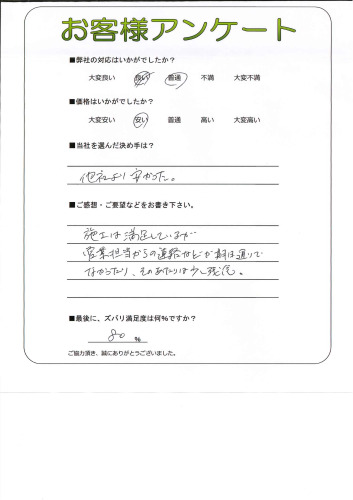 お客様アンケート
■弊社の対応はいかがでしたか?
大変良い 良い 普通 不満 大変不満
■価格はいかがでしたか?
大変安い 安い 普通 高い 大変高い
■当社を選んだ決め手は?
他社より安かった。
■ご感想・ご要望などをお書き下さい。
施工は満足しているが
営業担当からの連絡などが 通りで
なかったり、そのあたりは少し残念。
■最後に、ズバリ満足度は何%ですか?
80 %
ご協力頂き、誠にありがとうございました。